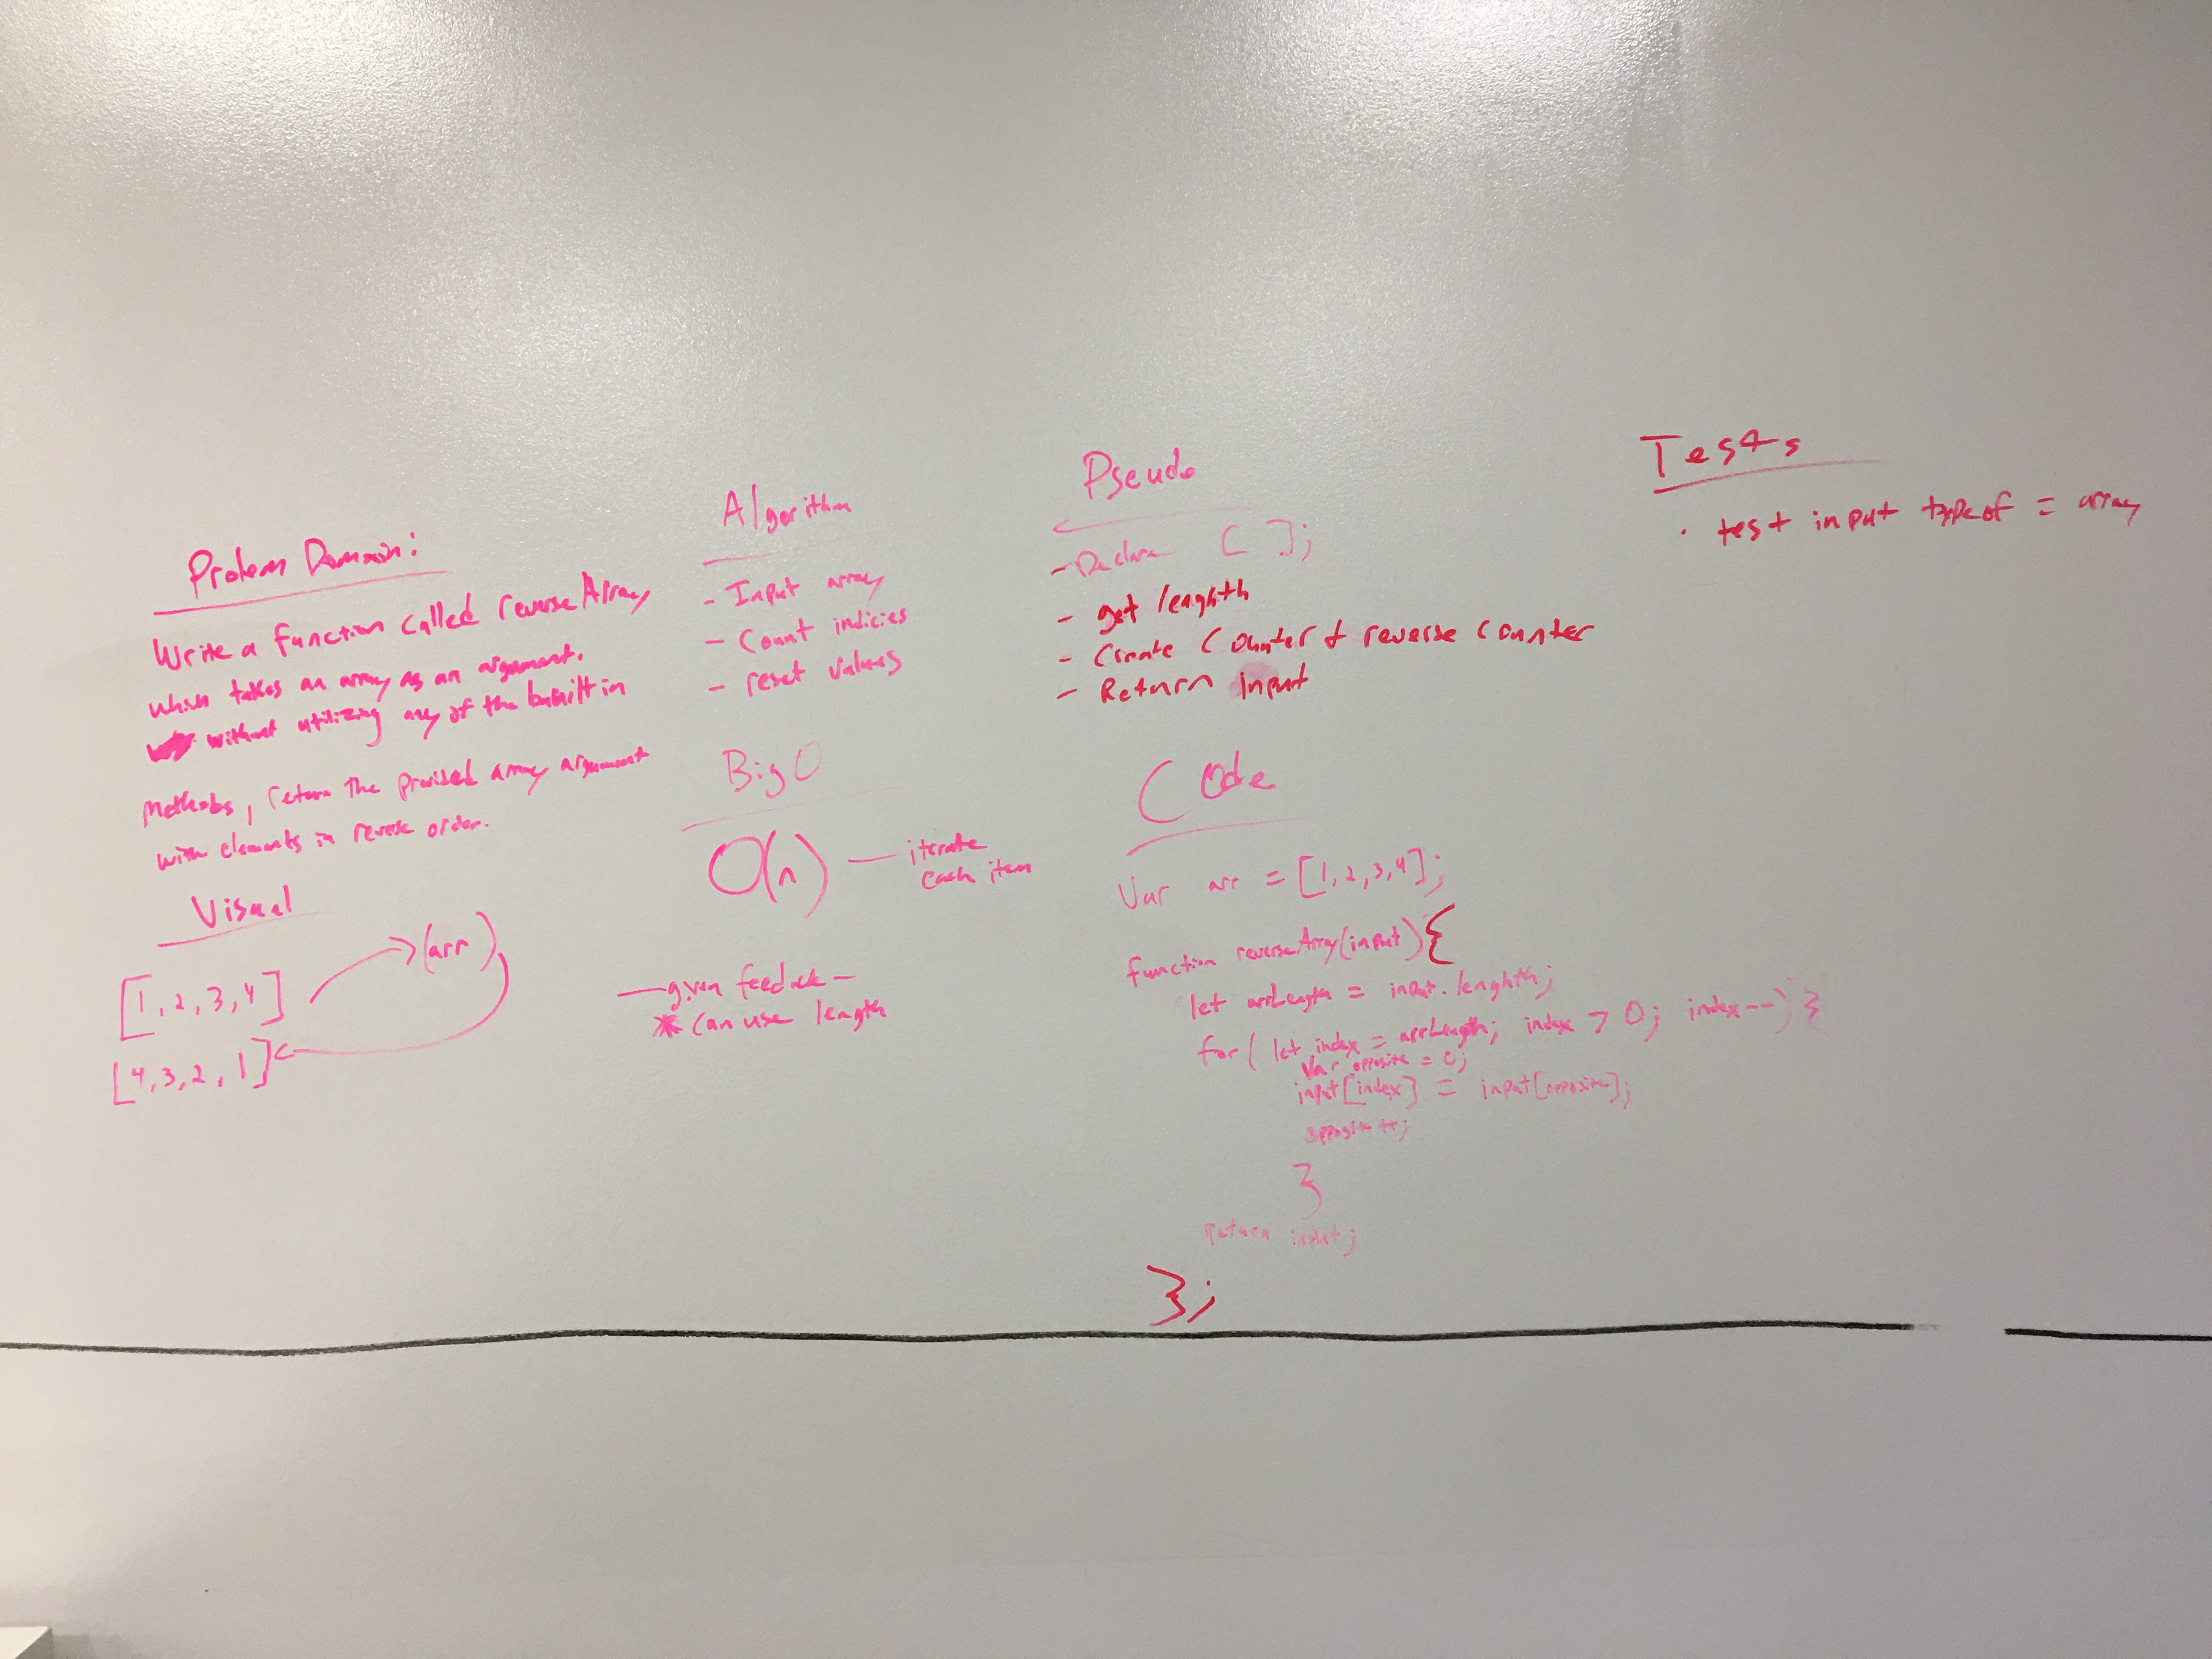 Problem Domain:
Write a function called reverseArray
which takes an array as an argument.
without utilizing any of the built in
methods, return the provided array argument
with elements in reverse order.
Visual
[1, 2, 3, 4] → (arr)
[4, 3, 2, 1] ←
Algorithm
- Input array
- Count indicies
- reset values
Big O
O(n) — iterate
each item
— given feedback —
* Can use length
Pseudo
- Declare [ ];
- get lenghth
- Create Counter + reverse counter
- Return input
Code
Var arr = [1, 2, 3, 4];
function reverseArray(input){
let arrLength = input.lenghth;
for( let index = arrLength; index > 0; index--) {
Var opposite = 0;
input[index] = input[opposite];
opposite++;
}
return input;
};
Tests
· test input typeof = array